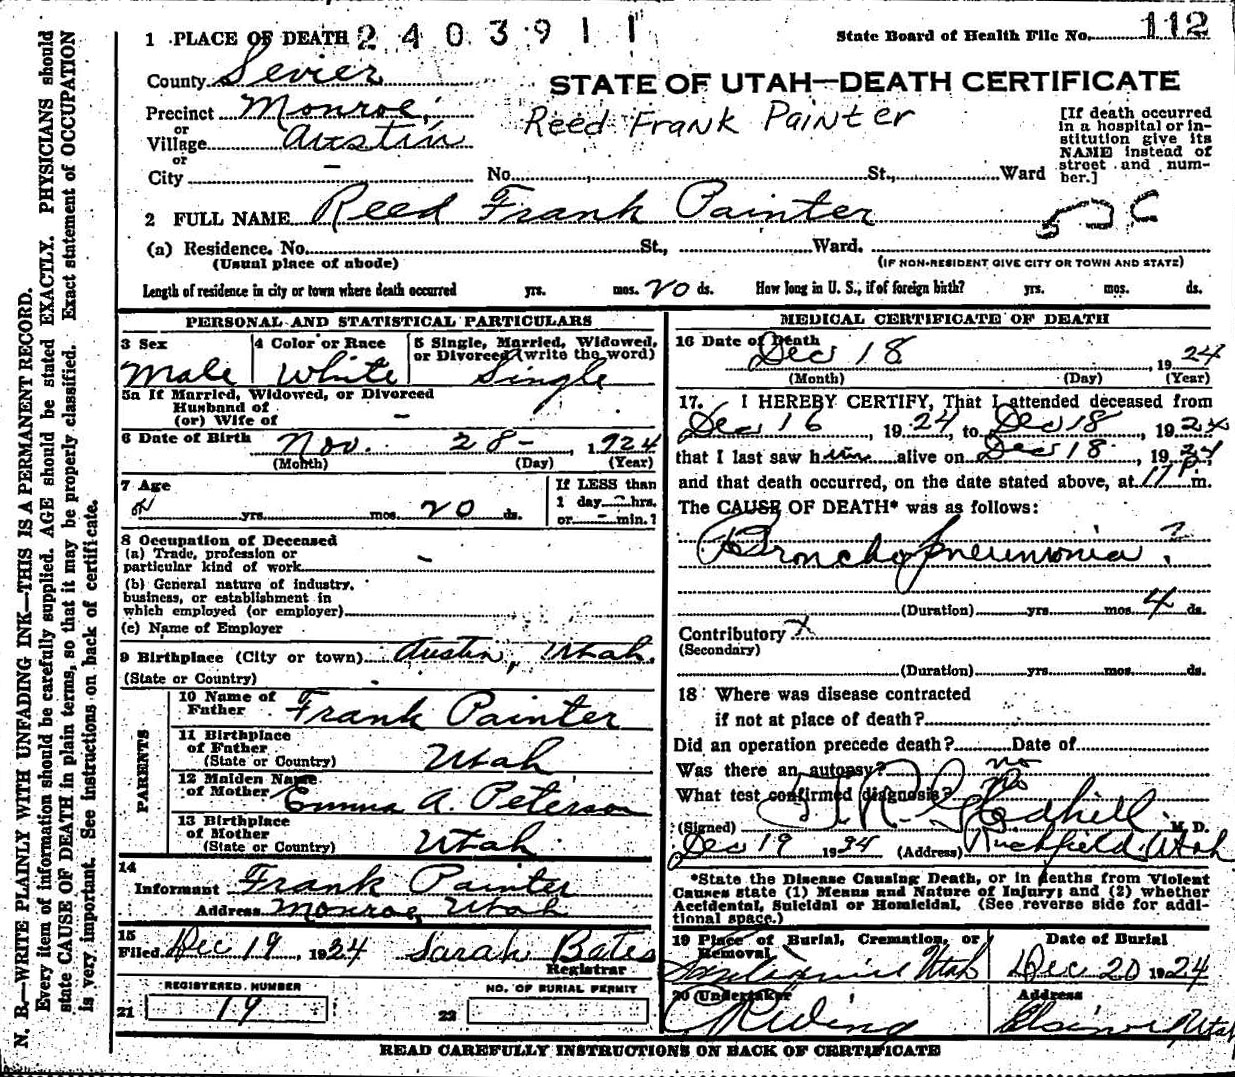 1 PLACE OF DEATH 2403911 State Board of Health File No. 112
County Sevier
STATE OF UTAH—DEATH CERTIFICATE
Precinct Monroe,
or
Village Austin
or
City – No. St., Ward
Reed Frank Painter
[If death occurred
in a hospital or in-
stitution give its
NAME instead of
street and num-
ber.]
2 FULL NAME Reed Frank Painter
(a) Residence. No. St., Ward.
(Usual place of abode) (IF NON-RESIDENT GIVE CITY OR TOWN AND STATE)
Length of residence in city or town where death occurred yrs. mos. 20 ds. How long in U. S., if of foreign birth? yrs. mos. ds.
PERSONAL AND STATISTICAL PARTICULARS
3 Sex 4 Color or Race 5 Single, Married, Widowed,
or Divorced (write the word)
Male White Single
5a If Married, Widowed, or Divorced
Husband of
(or) Wife of –
6 Date of Birth Nov. 28- , 1924
(Month) (Day) (Year)
7 Age If LESS than
1 day - hrs.
yrs. mos. 20 ds. or - min.?
8 Occupation of Deceased
(a) Trade, profession or
particular kind of work –
(b) General nature of industry,
business, or establishment in
which employed (or employer)
(c) Name of Employer
9 Birthplace (City or town) Austin, Utah.
(State or Country)
PARENTS
10 Name of
Father Frank Painter
11 Birthplace
of Father
(State or Country) Utah
12 Maiden Name
of Mother Emma A. Peterson
13 Birthplace
of Mother
(State or Country) Utah
14
Informant Frank Painter
Address Monroe, Utah
15
Filed Dec 19, 1924 Sarah Bates
Registrar
REGISTERED NUMBER NO. OF BURIAL PERMIT
21 19 22
MEDICAL CERTIFICATE OF DEATH
16 Date of Death
Dec 18 , 1924
(Month) (Day) (Year)
17. I HEREBY CERTIFY, That I attended deceased from
Dec 16 , 1924, to Dec 18 , 1924
that I last saw him alive on Dec 18 , 1924
and that death occurred, on the date stated above, at 11 P. m.
The CAUSE OF DEATH* was as follows:
Broncho pneumonia ?
(Duration) yrs. mos. 4 ds.
Contributory x
(Secondary)
(Duration) yrs. mos. ds.
18 Where was disease contracted
if not at place of death?
Did an operation precede death? Date of
Was there an autopsy? no
What test confirmed diagnosis? No
(Signed) M. D.
Dec 19 1924 (Address) Richfield, Utah
*State the Disease Causing Death, or in deaths from Violent
Causes state (1) Means and Nature of Injury; and (2) whether
Accidental, Suicidal or Homicidal. (See reverse side for addi-
tional space.)
19 Place of Burial, Cremation, or
Removal Date of Burial
Utah Dec 20 1924
20 Undertaker Address
Elsinore, Utah
READ CAREFULLY INSTRUCTIONS ON BACK OF CERTIFICATE
N. B.—WRITE PLAINLY WITH UNFADING INK—THIS IS A PERMANENT RECORD.
Every item of information should be carefully supplied. AGE should be stated EXACTLY. PHYSICIANS should
state CAUSE OF DEATH in plain terms, so that it may be properly classified. Exact statement of OCCUPATION
is very important. See instructions on back of certificate.